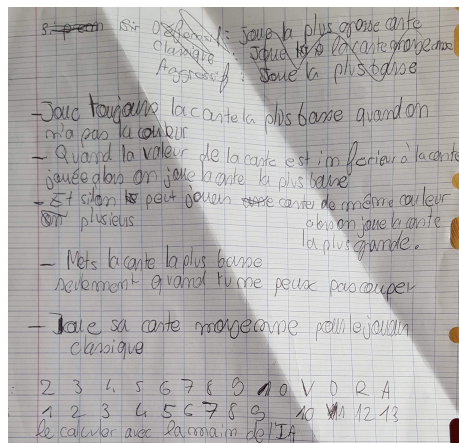 Offensif : Joue la plus grosse carte
Classique : Joue la carte moyenne
Aggressif : Joue la plus basse
- Joue toujours la carte la plus basse quand on
n'a pas la couleur
- Quand la valeur de la carte est inferieur à la carte
jouée alors on joue la carte la plus basse
- Et si l'on peut jouer carte de même couleur
plusieurs alors on joue la carte
la plus grande.
- Mets la carte la plus basse
seulement quand tu ne peux pas couper
- Joue sa carte moyenne pour le joueur
classique
2 3 4 5 6 7 8 9 10 V D R A
1 2 3 4 5 6 7 8 9 10 11 12 13
le calculer avec la main de l'IA